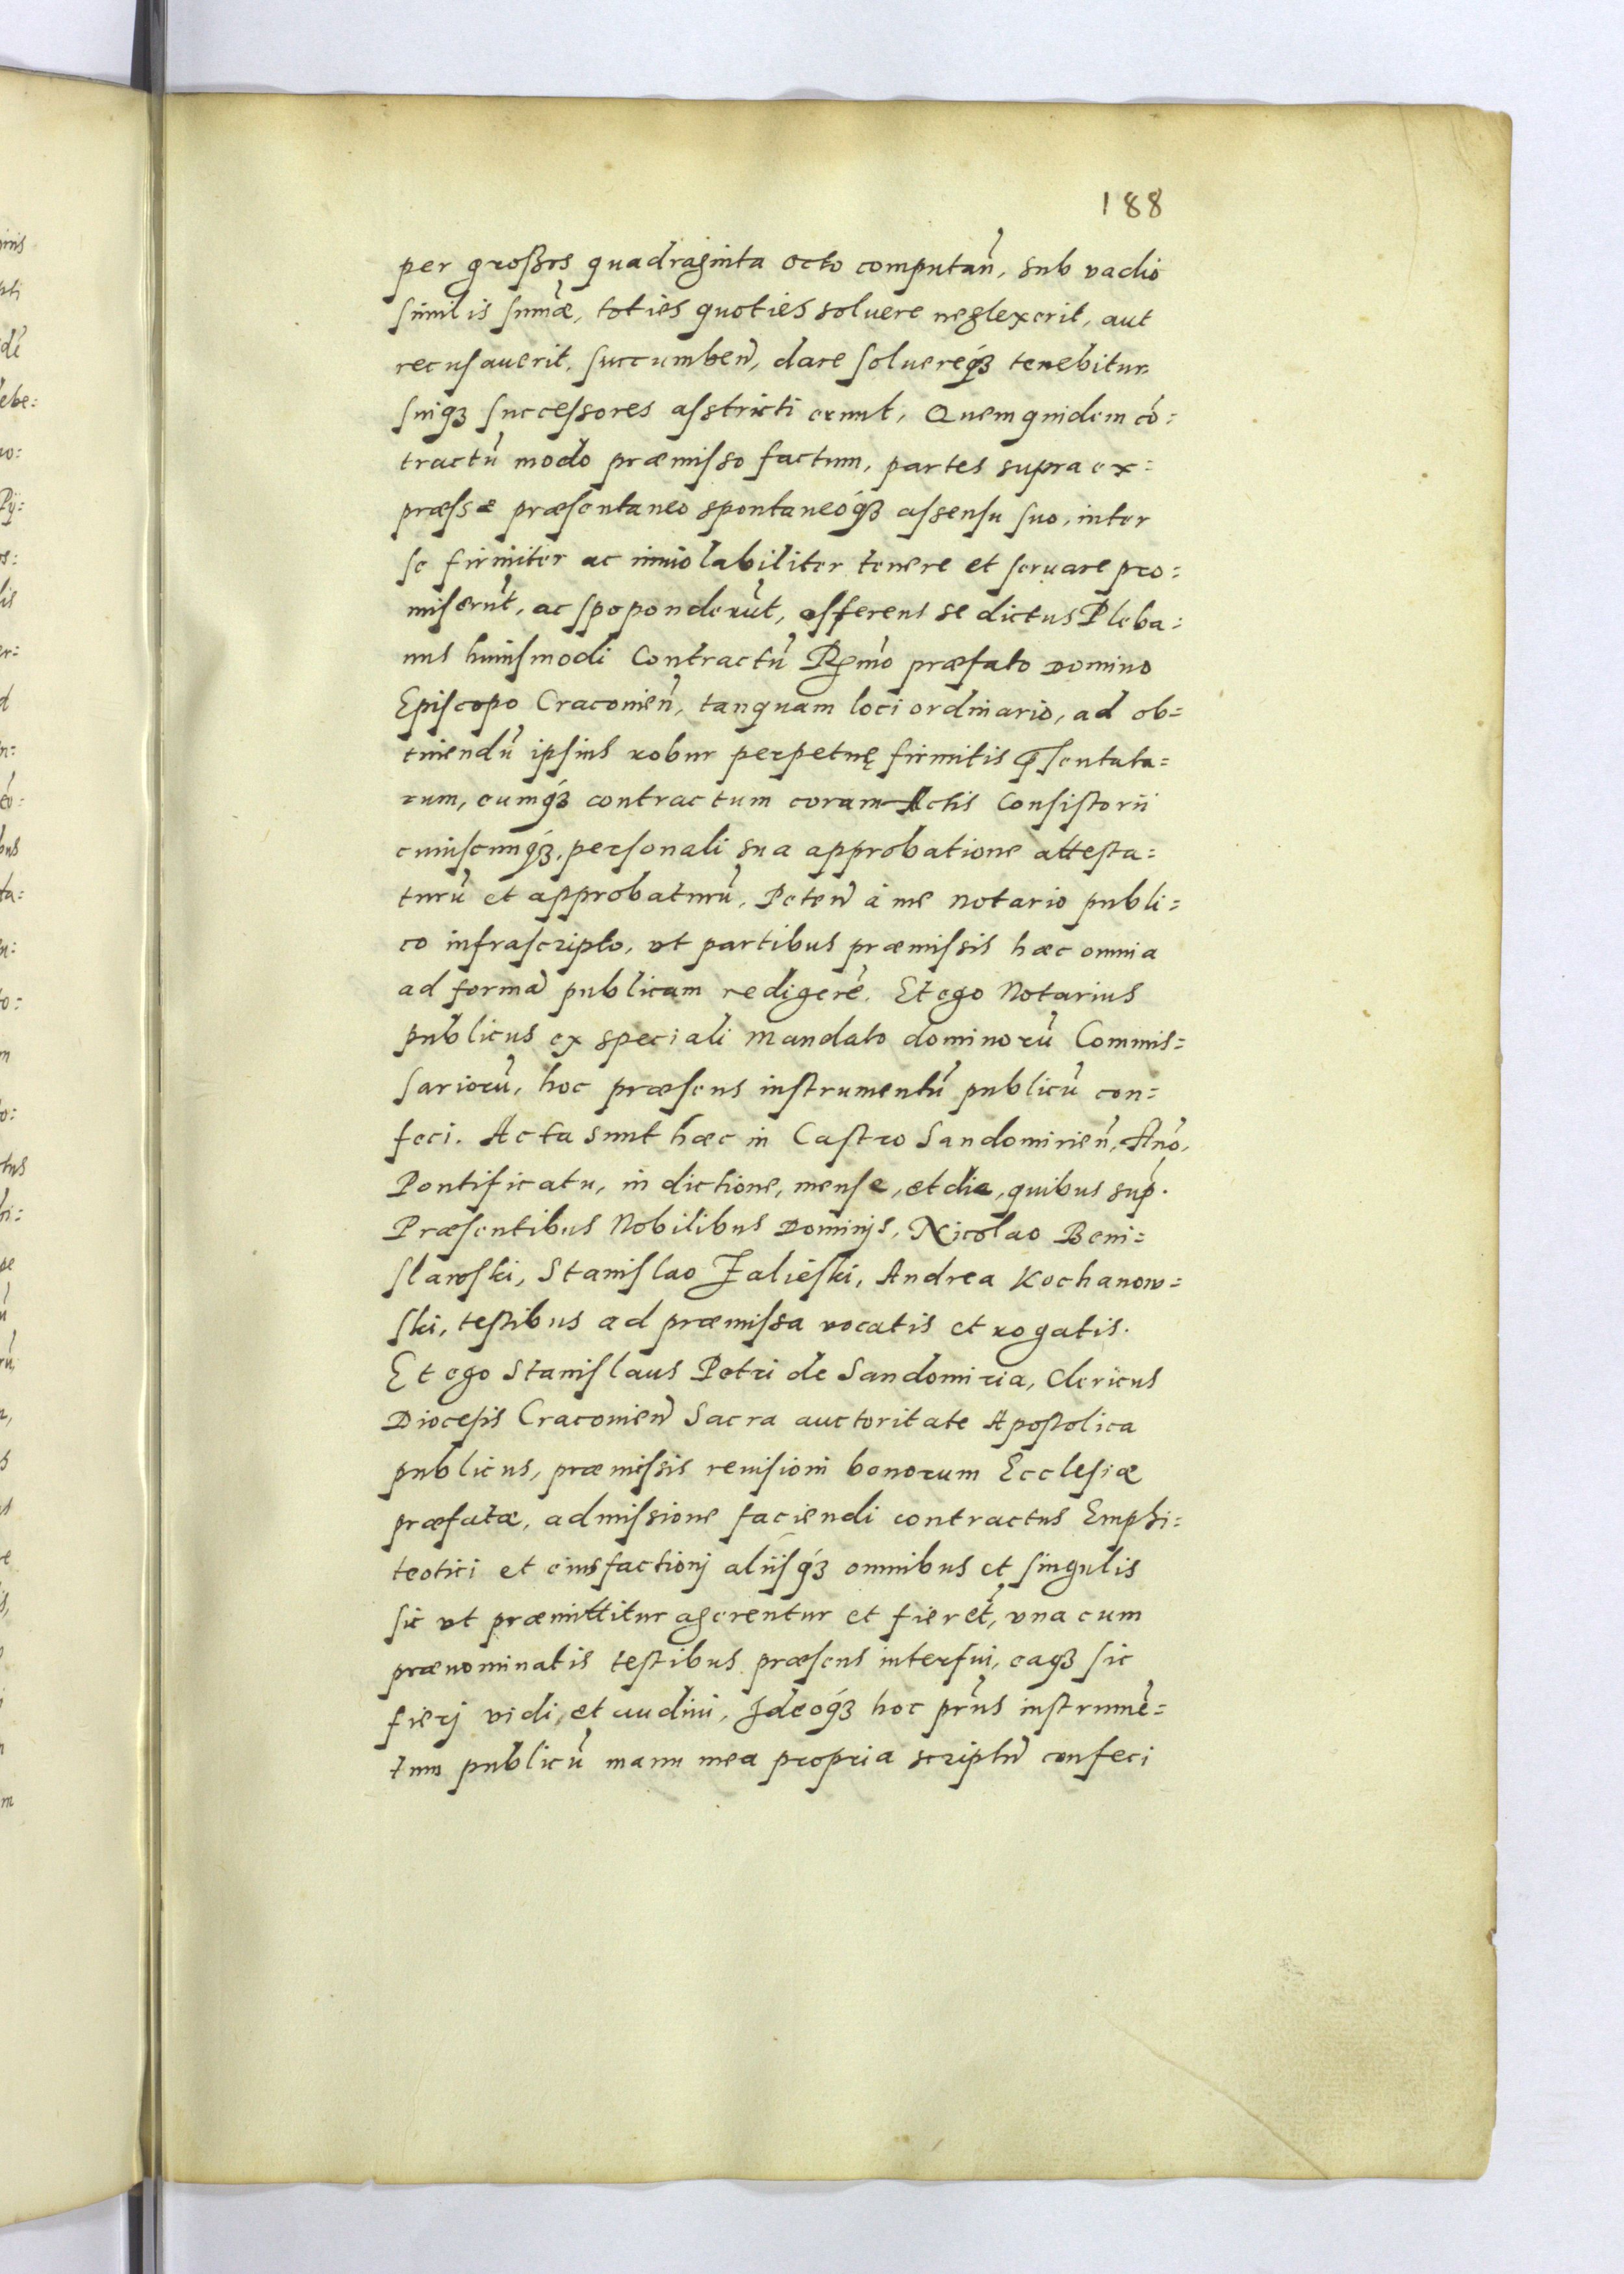 188
per grossos quadraginta octo computan̄, sub vadio
similis sum̄æ, toties quoties soluere neglexerit, aut
recusauerit, succumben̄, dare soluereq́ꝫ tenebitur
suiqꝫ successores asstricti erunt, Quemquidem cō=
tractū modo præmisso factum, partes supra ex=
præssæ præsentaneo spontaneoq́ꝫ assensu suo, inter
se firmiter ac inuiolabiliter tenere et seruare pro=
miserūt, ac spoponderūt, offerens se dictus Pleba=
nus huiusmodi Contractū Rm̄o præfato Domino
Episcopo Cracouien̄, tanquam loci ordinario, ad ob=
tinendū ipsius robur perpetuę firmitis p̄sentata=
rum, eumq́ꝫ contractum coram Actis Consistorii
cuiuscunq́ꝫ, personali sua approbatione attesta=
turū et approbaturū, Peten̄ à me Notario publi=
co infrascripto, vt partibus præmissis hæc omnia
ad formā publicam redigerē. Et ego Notarius
publicus ex speciali mandato dominorū Commis=
sariorū, hoc præsens instrumentū publicū con=
feci. Acta sunt hæc in Castro Sandomirien̄, An̄o,
Pontificatu, indictione, mense, et die, quibus sup̄.
Præsentibus Nobilibus Dominis, Nicolao Beni=
slawski, Stanislao Zalieski, Andrea Kochanow=
ski, testibus ad præmissa vocatis et rogatis.
Et ego Stanislaus Petri de Sandomiria, Clericus
Diocesis Cracouien̄ Sacra auctoritate Apostolica
publicus, præmissis reuisioni bonorum Ecclesiæ
præfatæ, admissione faciendi contractus Emphi=
teotici et eius factionj aliisq́ꝫ omnibus et singulis
sic vt præmittitur agerentur et fierēt, vna cum
prænominatis testibus præsens interfui, eaqꝫ sic
fierj vidi, et audiui, Ideoq́ꝫ hoc pr̄ns instrumē=
tum publicū manu mea propria scriptū confeci